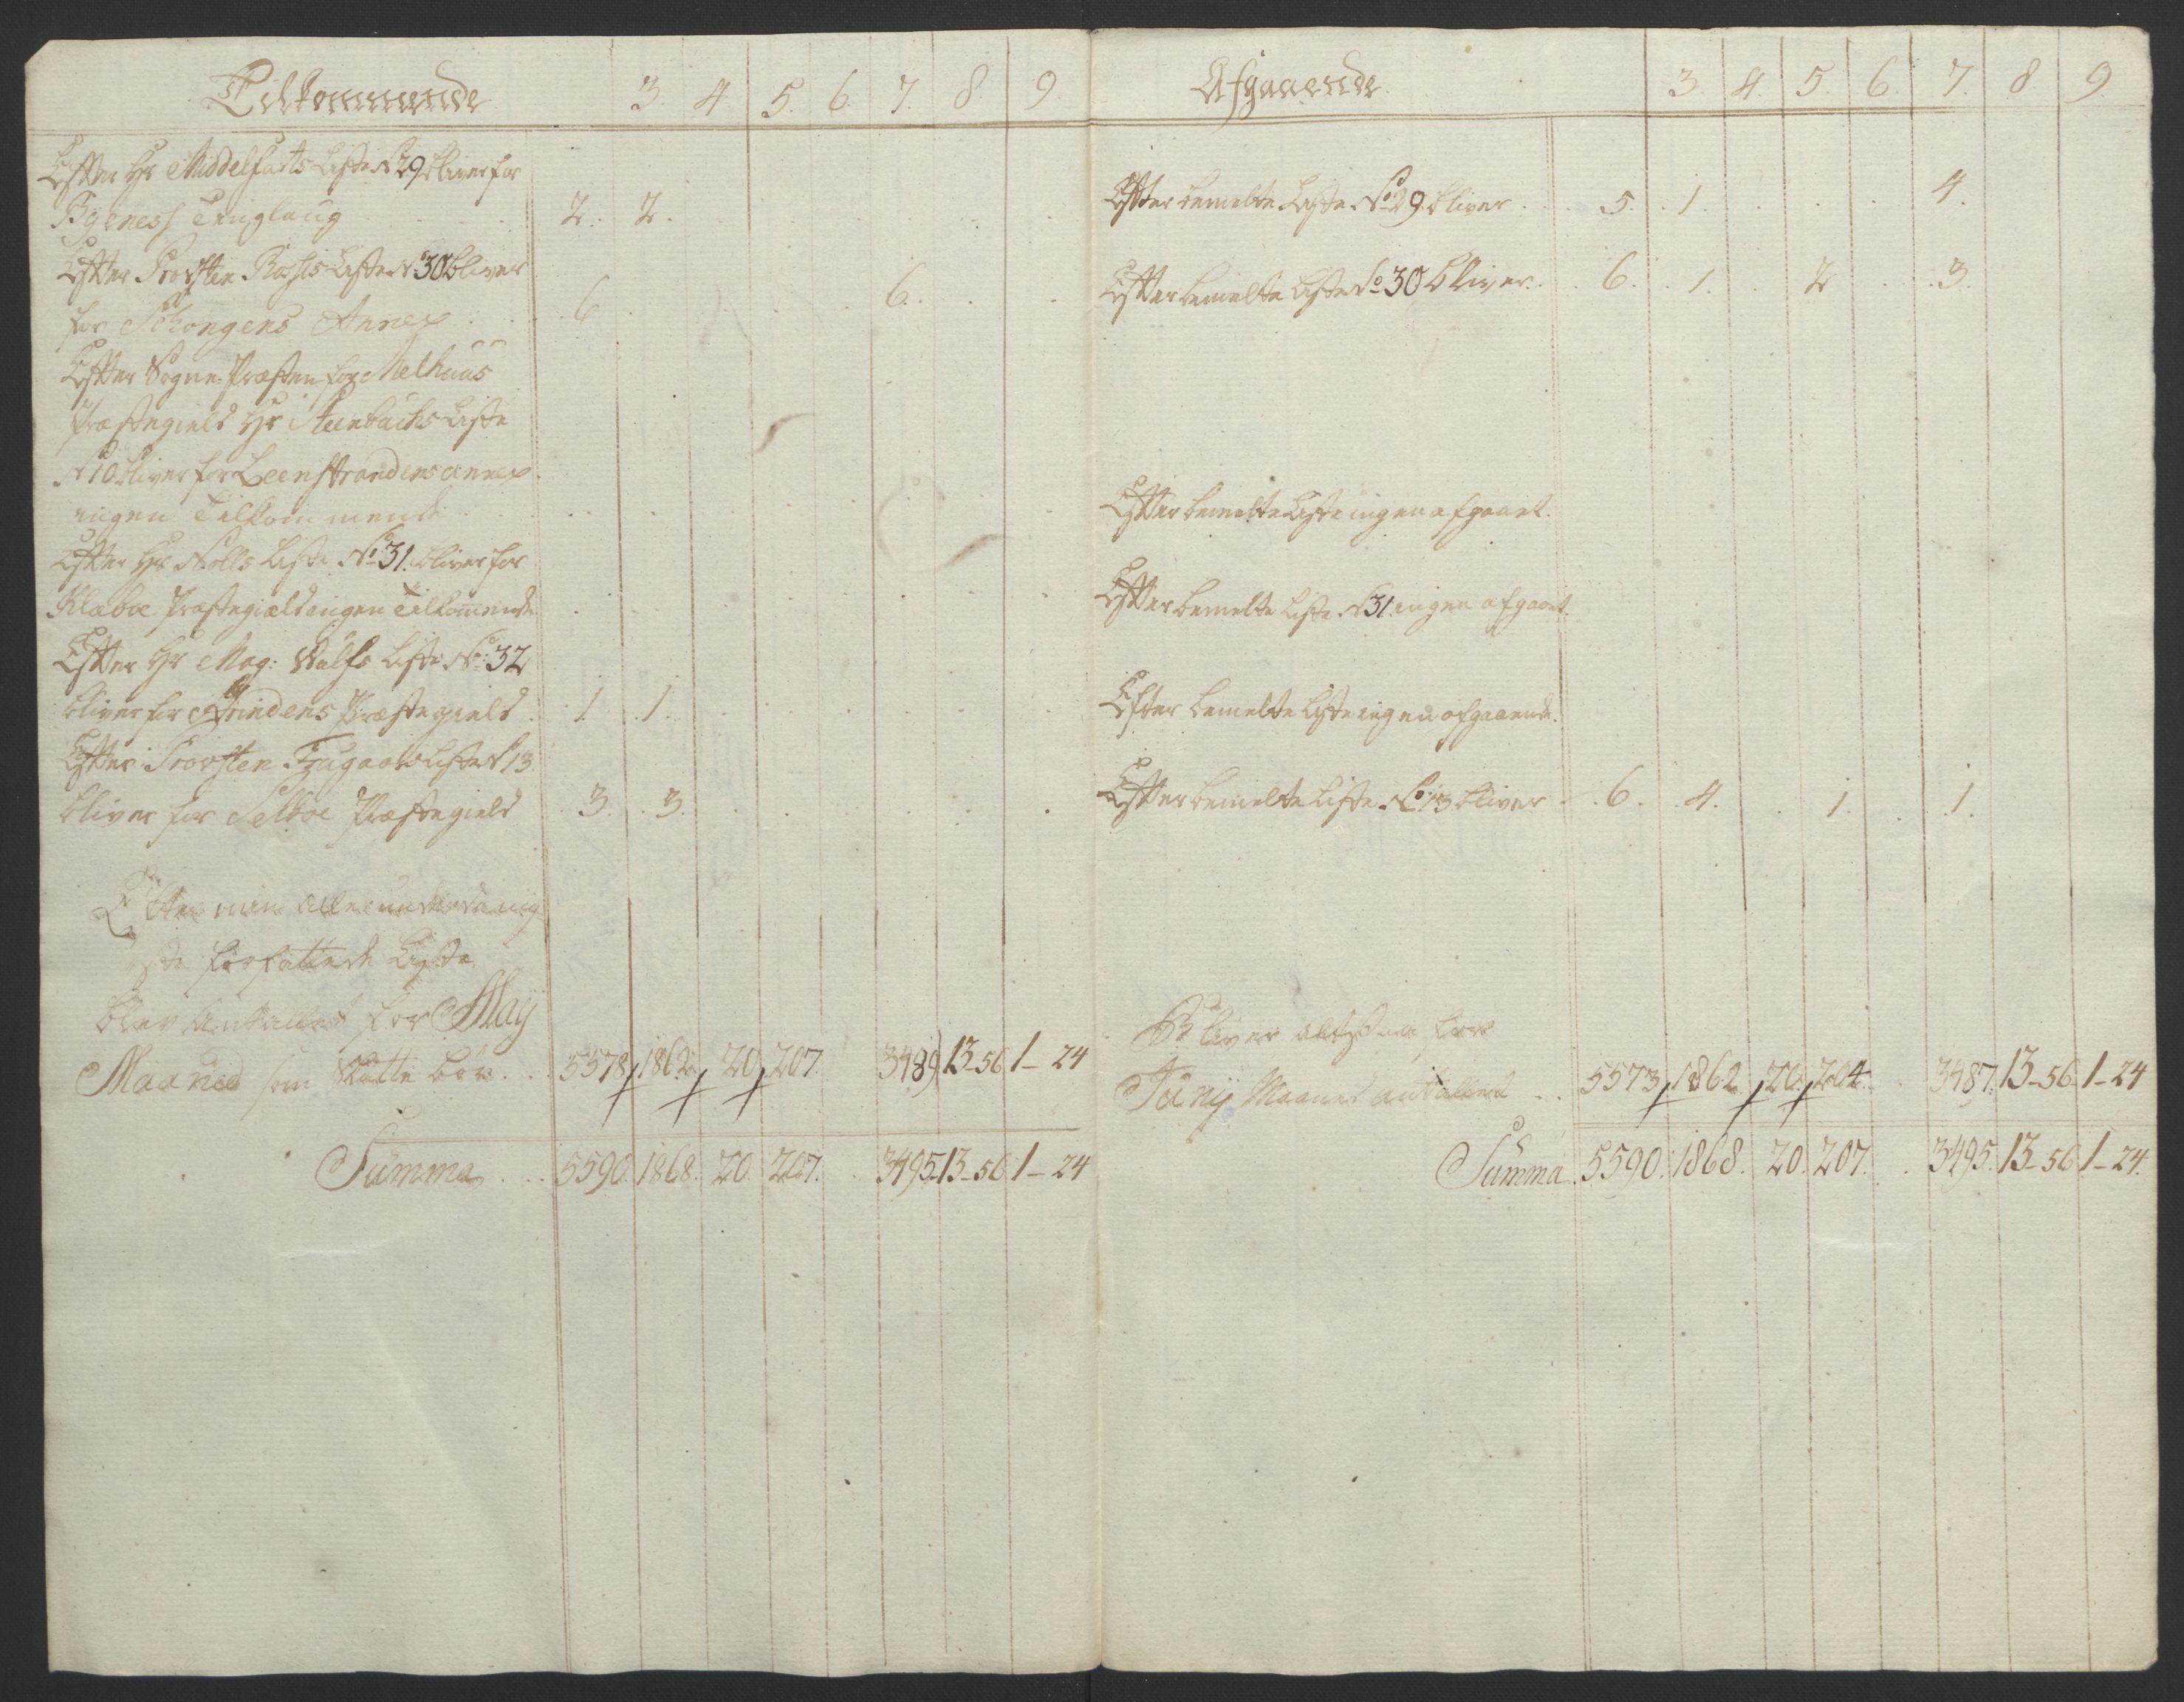 Tilkommende 3. 4. 5. 6. 7. 8. 9.
Efter Hr Middelfarts Liste No 29 bliver for
Byeness Tinglaug 2. 2.
Efter Provsten Liste No 30 bliver
for Annex 6 6.
Efter Sogne-Præsten for Melhuus
Præstegield Hr Steenbuchs Liste
No 10 bliver for Leenstrandens annex
ingen Tilkommende
Efter Hr Liste No 31. bliver for
Klæboe Præstegiæld ingen Tilkommende
Efter Hr Mag: Wulfs Liste No: 32
bliver for Strindens Præstegield 1. 1.
Efter Provsten Liste No 13
bliver for Selboe Præstegield 3. 3.
Efter min allerunderdanig-
ste forfattede Liste
blev Antallet for Maij
Maaned som Skatte bør 5578 1862 20 207. 3489 13-56 1-24
Summa 5590. 1868. 20. 207. 3495. 13-56 1-24
Afgaaende. 3. 4. 5. 6. 7. 8. 9.
Efter bemelte Liste No 29. bliver 5. 1. 4.
Efter bemelte Liste No 30 bliver. 6. 1. 2 3.
Efter bemelte Liste ingen afgaaet.
Efter bemelte Liste No 31. ingen afgaaet.
Efter bemelte Liste ingen afgaaende.
Efter bemelte Liste No 13 bliver 6. 4. 1. 1.
Bliver altsaa for
Junij Maaned antallet 5573. 1862. 20. 204. 3487. 13-56. 1-24
Summa 5590. 1868. 20. 207. 3495. 13-56 1-24.